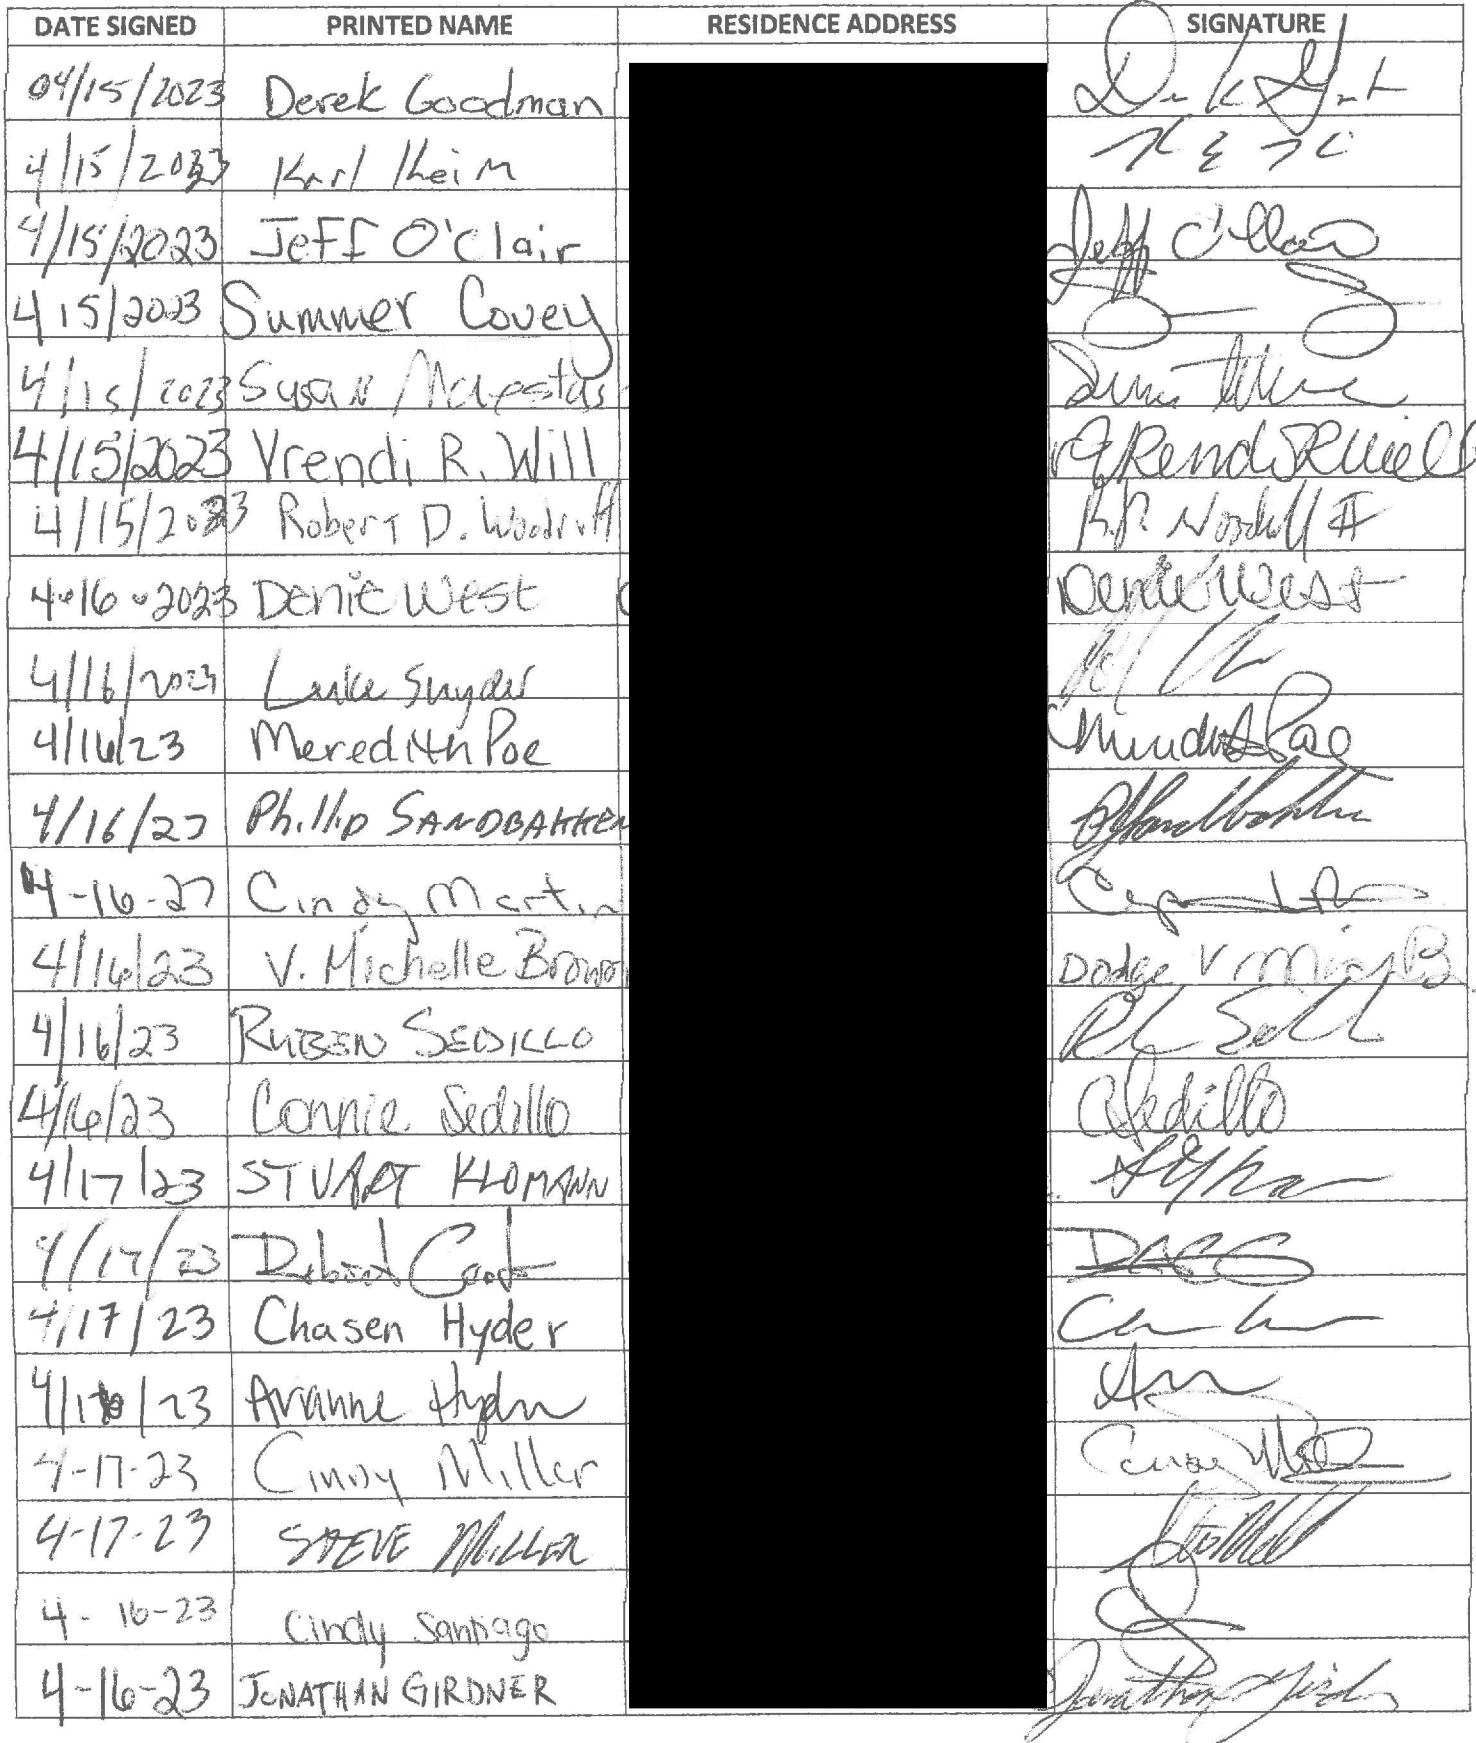 DATE SIGNED PRINTED NAME RESIDENCE ADDRESS SIGNATURE
04/15/2023 Derek Goodman
4/15/2023 Karl Keim
4/15/2023 Jeff O'Clair Jeff O'Clair
4 15/2023 Summer Covey
4/15/2023 Susan
4/15/2023 Vrendi R. Will Vrendi R Will
4/15/2023 Robert D. Woodruff R.D. Woodruff II
4-16-2023 Denie West Denie West
4/16/2023 Luke Snyder
4/16/23 Meredith Poe Meredith Poe
4/16/23 Phillip SANDBAKKEN
4-16-23 Cindy Martin
4/16/23 V. Michelle Brown Dodge V
4/16/23 RUBEN SEDILLO
4/16/23 Connie Sedillo C Sedillo
4/17/23 STUART KLOMANN
4/17/23
4/17/23 Chasen Hyder
4/16/23 Avianne Hyder
4-17-23 Cindy Miller
4-17-23 STEVE MILLER
4-16-23 Cindy Santiago
4-16-23 JONATHAN GIRDNER Jonathan Girdner